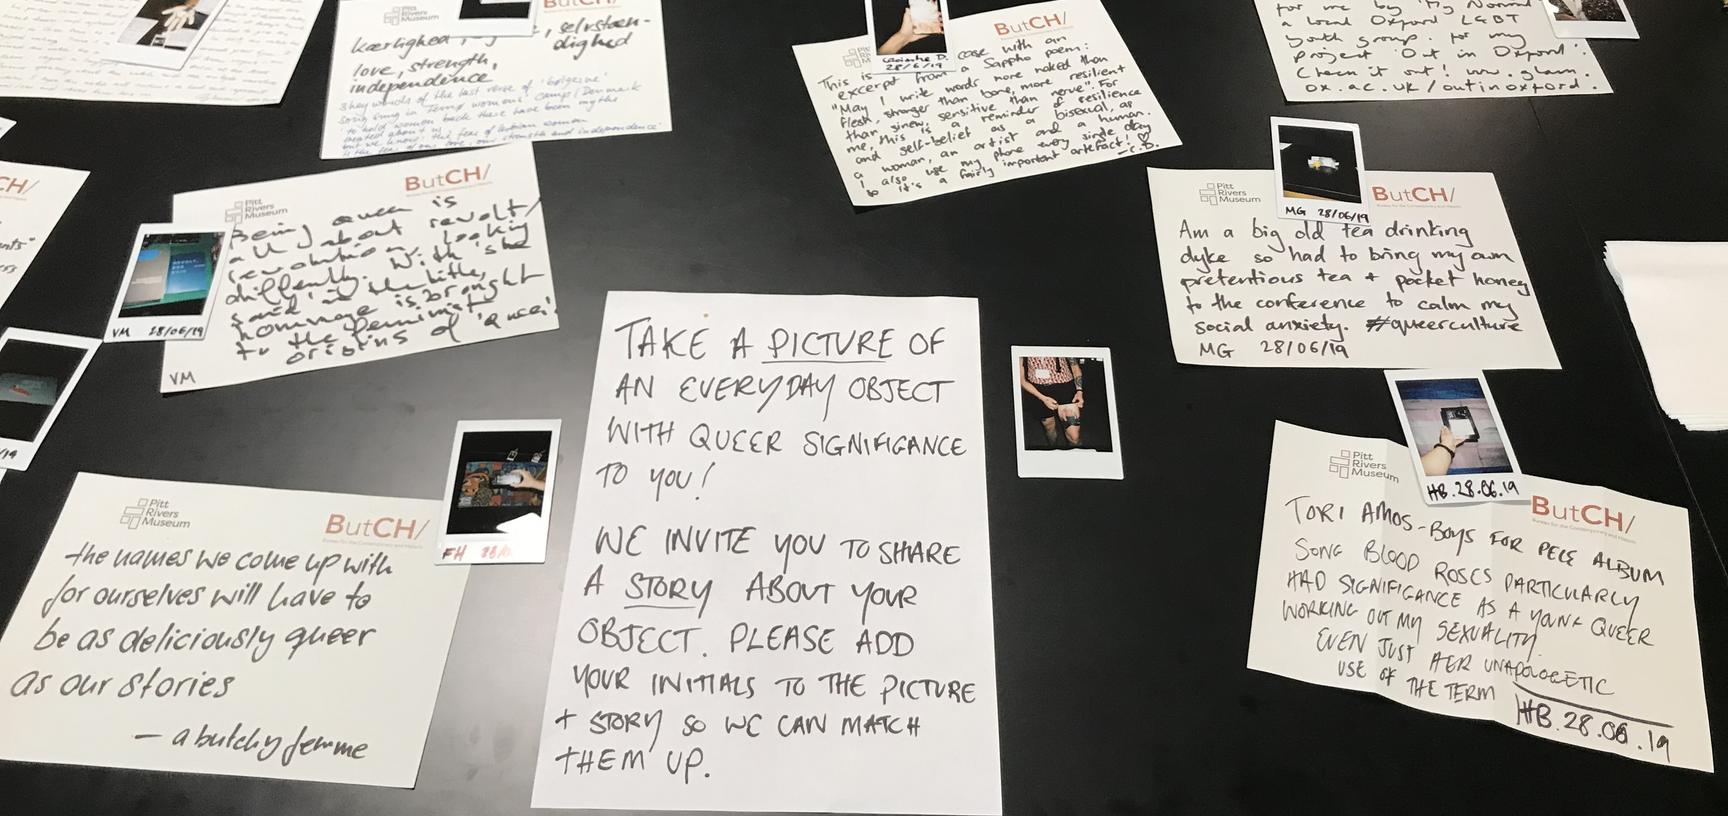 Pitt
Rivers
Museum
ButCH/
kærlighed
selvstæn-
dighed
love, strength,
independence
ButCH/
Lasinthe D.
28/6/19
This is
case with an
excerpt from a Sappho poem:
"May I write words more naked than
flesh, stronger than bone, more resilient
than sinew, sensitive than nerve". For
me, this is a reminder of resilience
and self-belief as a bisexual, as
a woman, an artist and a human.
I also use my phone every single day
so it's a fairly important artefact! ♡
- C.D.
for me by 'My Normal'
a local Oxford LGBT
youth group. for my
project 'Out in Oxford'.
Check it out! www.glam.
ox.ac.uk/outinoxford.
Pitt
Rivers
Museum
ButCH/
Being queer is
all about revolt/
revolution, looking
differently. With 'she
said' in the title,
hommage is brought
to the feminist
origins of 'queer'!
VM
VM 28/06/19
Pitt
Rivers
Museum
ButCH/
MG 28/06/19
Am a big old tea drinking
dyke so had to bring my own
pretentious tea + pocket honey
to the conference to calm my
social anxiety. #queerculture
MG 28/06/19
TAKE A PICTURE OF
AN EVERYDAY OBJECT
WITH QUEER SIGNIFIGANCE
TO YOU!
WE INVITE YOU TO SHARE
A STORY ABOUT YOUR
OBJECT. PLEASE ADD
YOUR INITIALS TO THE PICTURE
+ STORY SO WE CAN MATCH
THEM UP.
Pitt
Rivers
Museum
ButCH/
the names we come up with
for ourselves will have to
be as deliciously queer
as our stories
— a butchy femme
FH
HB.28.06.19
Pitt
Rivers
Museum
ButCH/
TORI AMOS - BOYS FOR PELE ALBUM
SONG BLOOD ROSES PARTICULARLY
HAD SIGNIFICANCE AS A YOUNG QUEER
WORKING OUT MY SEXUALITY.
EVEN JUST HER UNAPOLOGETIC
USE OF THE TERM
HB.28.06.19